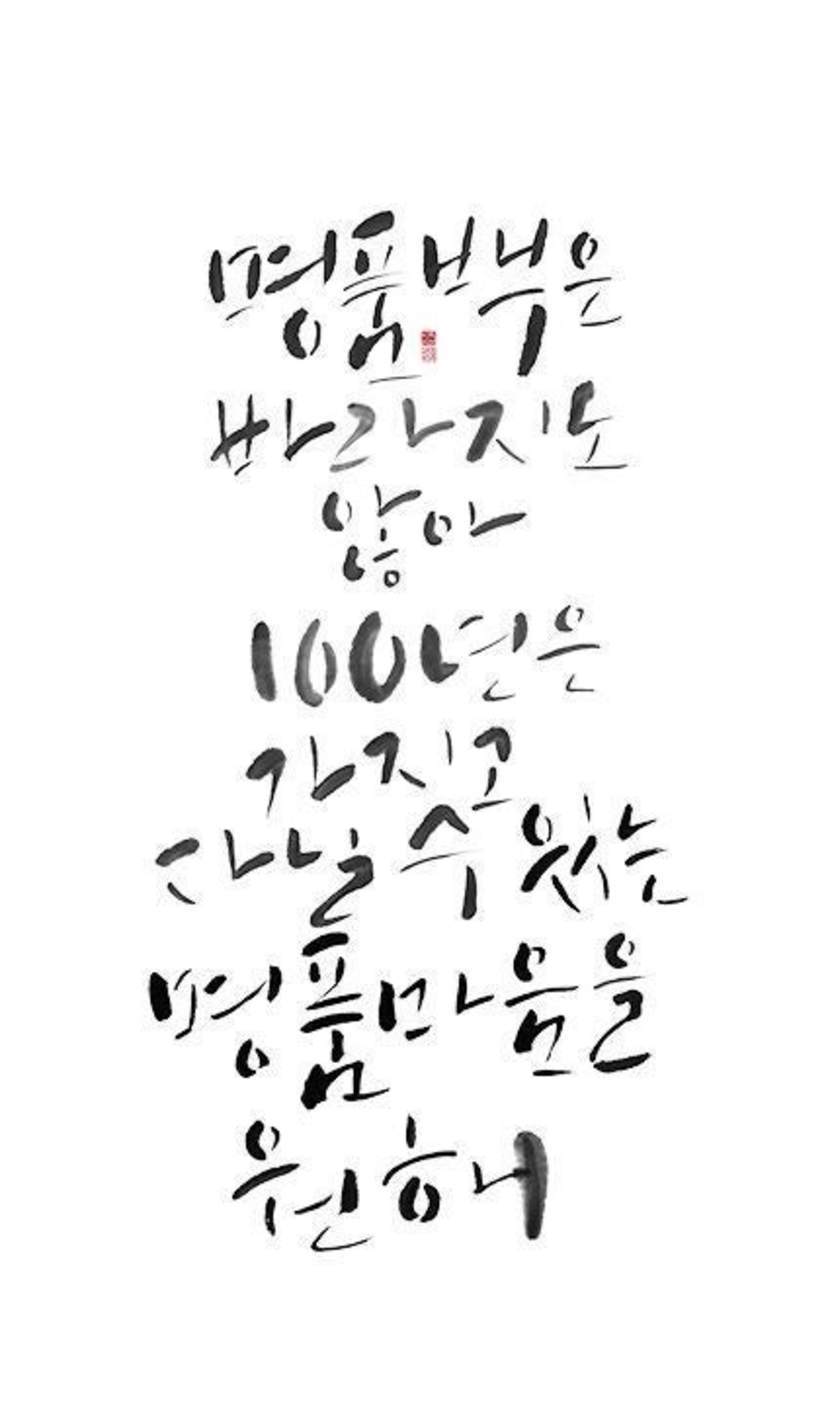 명품백은
바라지도
않아
100년은
가지고
다닐 수 있는
명품마음을
원해